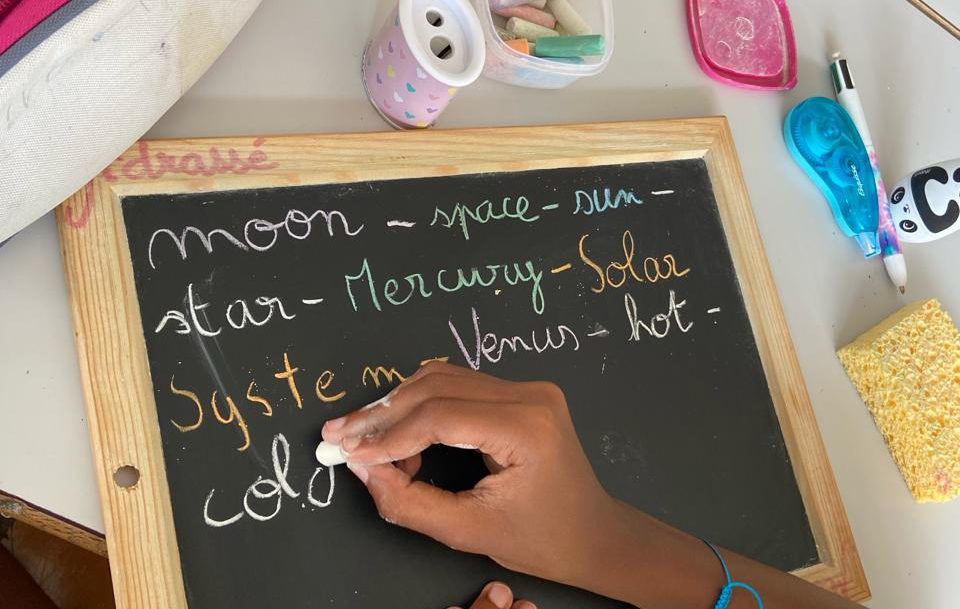 moon - space - sun -
star - Mercury - Solar
System - Venus - hot -
col